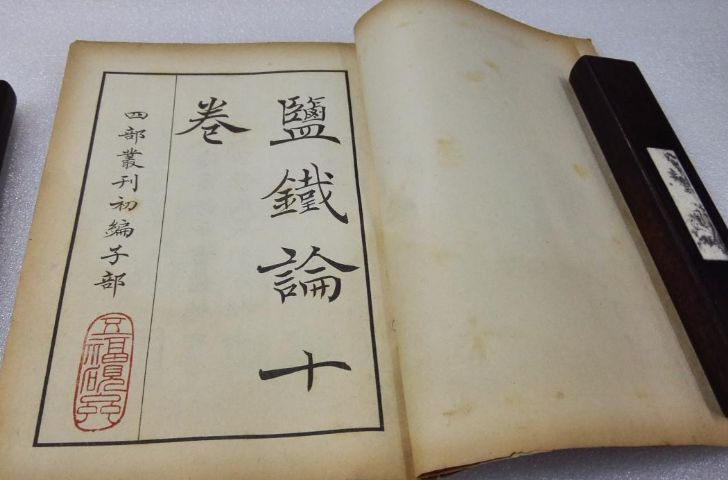 鹽鐵論十
卷
四部叢刊初編子部